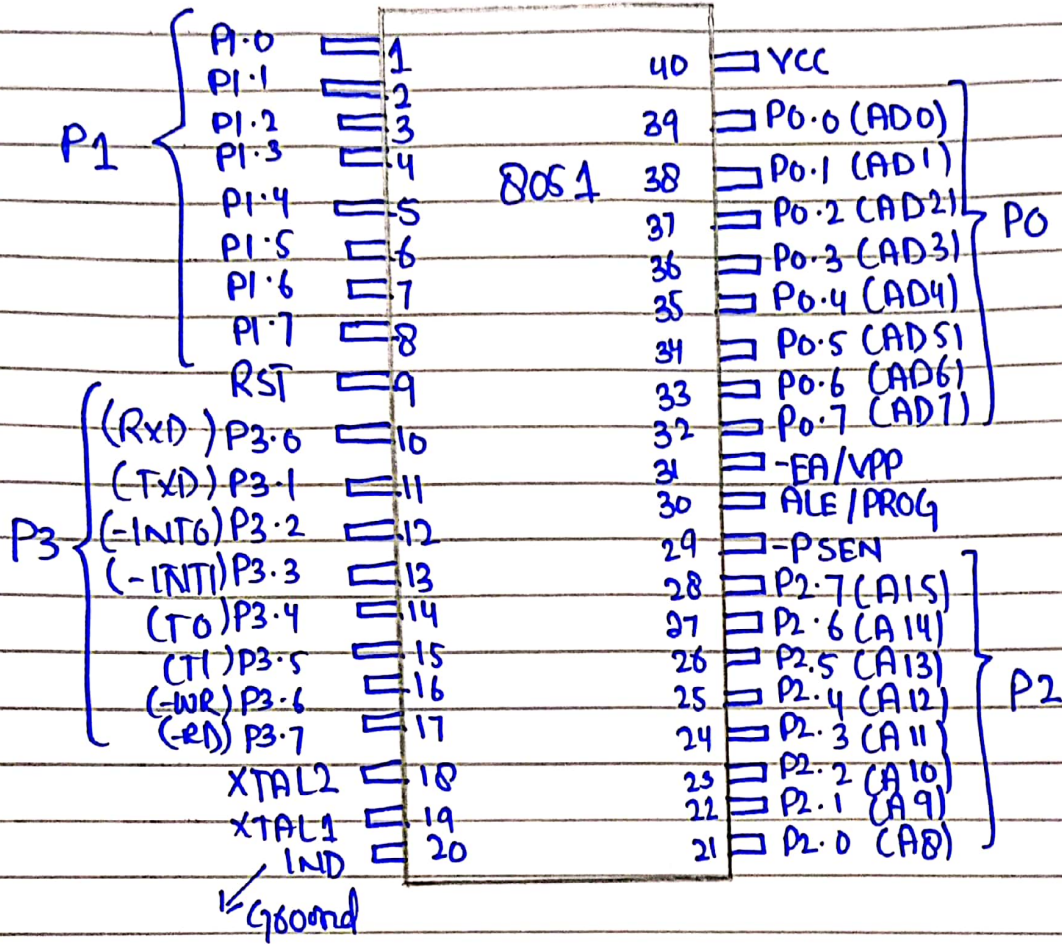 P1
P1.0 1
P1.1 2
P1.2 3
P1.3 4
P1.4 5
P1.5 6
P1.6 7
P1.7 8
RST 9
P3
(RXD) P3.0 10
(TXD) P3.1 11
(-INT0) P3.2 12
(-INT1) P3.3 13
(T0) P3.4 14
(T1) P3.5 15
(-WR) P3.6 16
(-RD) P3.7 17
XTAL2 18
XTAL1 19
IND 20
Ground
8051
40 VCC
39 P0.0 (AD0)
38 P0.1 (AD1)
37 P0.2 (AD2)
36 P0.3 (AD3)
35 P0.4 (AD4)
34 P0.5 (AD5)
33 P0.6 (AD6)
32 P0.7 (AD7)
P0
31 -EA/VPP
30 ALE/PROG
29 -PSEN
28 P2.7 (A15)
27 P2.6 (A14)
26 P2.5 (A13)
25 P2.4 (A12)
24 P2.3 (A11)
23 P2.2 (A10)
22 P2.1 (A9)
21 P2.0 (A8)
P2